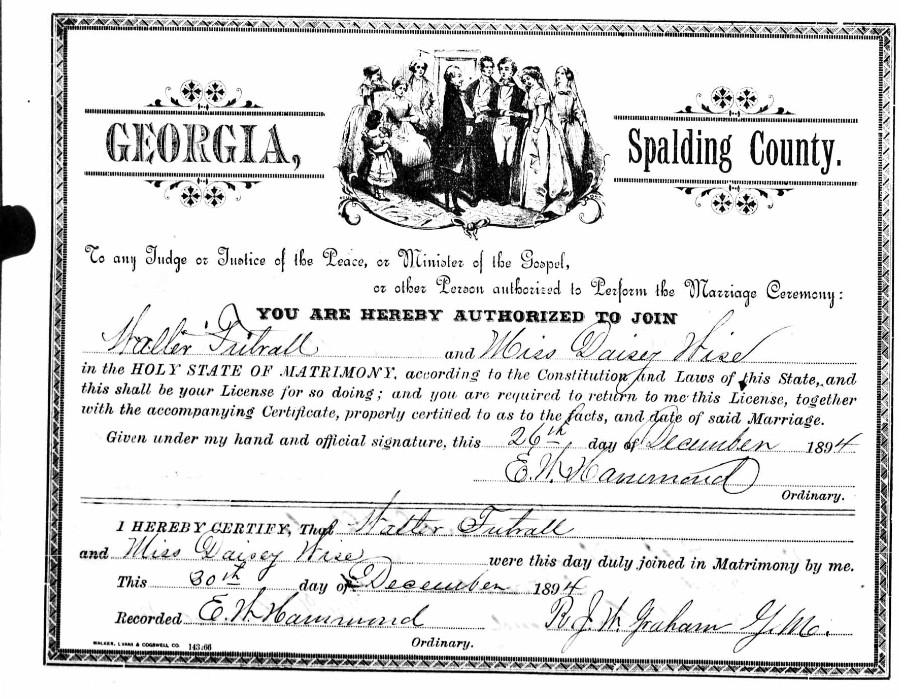 GEORGIA,
Spalding County.
To any Judge or Justice of the Peace, or Minister of the Gospel,
or other Person authorized to Perform the Marriage Ceremony:
YOU ARE HEREBY AUTHORIZED TO JOIN
Walter and Miss Daisey Wise
in the HOLY STATE OF MATRIMONY, according to the Constitution and Laws of this State, and
this shall be your License for so doing; and you are required to return to me this License, together
with the accompanying Certificate, properly certified to as to the facts, and date of said Marriage.
Given under my hand and official signature, this 26th day of December 1894
E. W. Hammond
Ordinary.
I HEREBY CERTIFY, That Walter
and Miss Daisey Wise were this day duly joined in Matrimony by me.
This 30th day of December 1894
Recorded E. W. Hammond R. J. W. Graham
Ordinary.
WALKER, EVANS & COGSWELL CO. 143:66